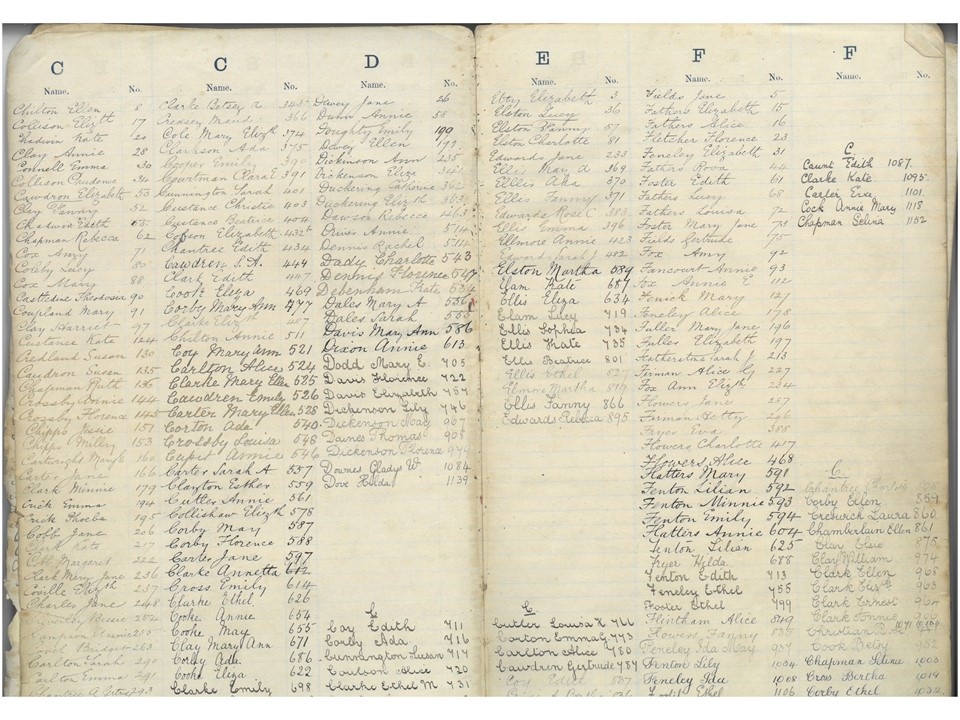 C
Name. No.
Chilton Ellen 8
Collison Elizth 17
Chadwin Kate 20
Clay Annie 28
Connell Emma 30
Collison Prudoma 34
Cawdron Elizabeth 50
Clay Fanny 52
Chadwin Edith 55
Chapman Rebecca 62
Cox Amy
Coleby Lucy 80
Cox Mary 88
Castledine Theodosia 90
Coupland Mary 91
Clay Harriet 97
Custance Kate 124
Ackland Susan 130
Cawdron Susan 135
Chapman Ruth 136
Crosby Annie 144
Crosby Florence 145
Chipps Jessie 151
Chipps Milley 153
Cartwright Mary E 160
Carter Jane 166
Clark Minnie 179
Crick Emma 194
Crick Phoeba 195
Cobb Jane 206
Clark Kate 217
Cobb Margaret 222
Keck Mary Jane 236
Coville Elizth 237
Charles Jane 248
263
Carlton Sarah 290
Carlton Emma 291
293
C
Name. No.
Clarke Betsey A 343
Credsey Maud 366
Cole Mary Elizth 374
Clarkson Ada 375
Cooper Emily 390
Courtman Clara E 391
Cunnington Sarah 401
Custance Christie 403
Custance Beatrice 404
Cobson Elizabeth 432
Chantree Edith 434
Cawdren S. A. 444
Clark Edith 447
Cook Eliza 469
Corby Mary Ann 477
Clarke Elizth 487
Chilton Annie 511
Coy Mary Ann 521
Carlton Alice 524
Clarke Mary Ellen 525
Cawdren Emily 526
Carter Mary Ellen 528
Corton Ada 540
Crossby Louisa 548
Cupit Annie 546
Carter Sarah A 557
Clayton Esther 559
Cutler Annie 561
Collishaw Elizth 578
Corby Mary 587
Corby Florence 588
Carter Jane 597
Clarke Annetta 612
Cross Emily 614
Clarke Ethel 626
Cooke Annie 654
Cooke May 655
Clay Mary Ann 671
Corby Ada 686
Cooke Eliza 622
Clarke Emily 698
D
Name. No.
Davey Jane 26
Dunn Annie 58
Doughty Emily 199
Davey Ellen 199
Dickinson Ann 235
Dickenson Eliza 341
Duchering Catherine 362
Duckering Elizth 363
Dawson Rebecca 463
Drives Annie 514
Dennis Rachel 514
Dady Charlotte 543
Dennis Florence 547
Debenham Kate 554
Dales Mary A 556
Dales Sarah 555
Davis Mary Ann 586
Dixon Annie 613
Dodd Mary E. 705
Davis Florence 722
Davis Elizabeth 757
Dickenson Lily 746
Dickenson May 907
Daines Thomas 908
Dickenson Florence 979
Downes Gladys W 1084
Dove Hilda 1139
C
Coy Edith 711
Corby Ada 716
Cunnington Susan 717
Coulson Alice 720
Clarke Ethel M 731
E
Name. No.
Ebty Elizabeth 3
Elston Lucy 36
Elston Fanny 57
Elston Charlotte 81
Edwards Jane 233
Ellis Mary A 369
Ellis Ada 370
Ellis Fanny 371
Edwards Rose C 383
Ellis Emma 396
Ellmore Annie 423
Edwards Sarah J 482
Elston Martha 589
Elam Kate 687
Ellis Eliza 634
Elam Lucy 719
Ellis Sophia 734
Ellis Kate 735
Ellis Beatrice 801
Ellis Ethel 827
Elmore Martha 819
Ellis Fanny 866
Edwards Rebecca 895
C
Cutler Louisa K 766
Corton Emma G 773
Carlton Alice 780
Cawdron Gertrude 787
Coy Edith 807
F
Name. No.
Fields Jane 5
Fathers Elizabeth 15
Fathers Alice 16
Fletcher Florence 23
Feneley Elizabeth 31
Fathers Rosa 44
Foster Edith 61
Fathers Lucy 68
Fathers Louisa 72
Foster Mary Jane 73
Fields Gertrude 75
Fox Amy 92
Fancourt Annie 93
Fox Annie E 112
Fenick Mary 127
Feneley Alice 178
Fuller Mary Jane 196
Fuller Elizabeth 197
Fatherstone Sarah J 213
Firman Alice G 227
Fox Ann Elizth 234
Flowers Jane 237
Firman Hetty 266
Fryer Eva 388
Flowers Charlotte 417
Flowers Alice 468
Flatters Mary 591
Fenton Lilian 592
Fenton Minnie 593
Fenton Emily 594
Flatters Annie 604
Fenton Lilian 625
Fryer Hylda 688
Fenton Edith 713
Feneley Ethel 755
Foster Ethel 799
Flintham Alice 849
Flowers Fanny 836
Feneley Ida May 937
Fenton Lily 1004
Feneley Ida 1008
Foottit Ethel 1106
F
Name. No.
C
Caunt Edith 1087
Clarke Kate 1095
Carter Eva 1101
Cock Annie Mary 1118
Chapman Selina 1152
C.
Corby Ellen 857
Creswick Laura 860
Chamberlain Ellen 861
Clay Elsie 875
Clay William 974
Clark Ellen 968
Clark Elizth 963
Clark Ernest 960
Clark Annie
Cook Betsy 982
Chapman Selina 1000
Cross Bertha 1014
Corby Ethel 1032